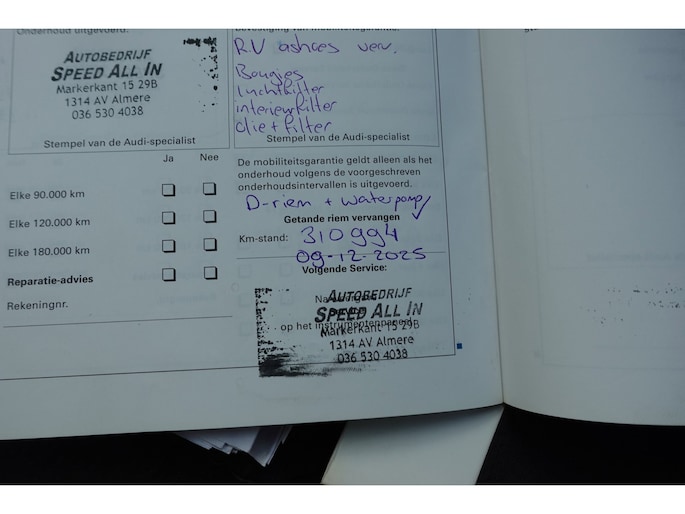 Onderhoud uitgevoerd:
AUTOBEDRIJF
SPEED ALL IN
Markerkant 15 29B
1314 AV Almere
036 530 4038
Stempel van de Audi-specialist
Ja Nee
Elke 90.000 km
Elke 120.000 km
Elke 180.000 km
Reparatie-advies
Rekeningnr.
Bevestiging van mobiliteitsgarantie:
R.V ashoes verv.
Bougies
luchtfilter
interieurfilter
olie + filter
Stempel van de Audi-specialist
De mobiliteitsgarantie geldt alleen als het
onderhoud volgens de voorgeschreven
onderhoudsintervallen is uitgevoerd.
D-riem + waterpomp
Getande riem vervangen
Km-stand: 310994
09-12-2025
Volgende Service:
AUTOBEDRIJF
SPEED ALL IN
op het instrumentenpaneel
Markerkant 15 29B
1314 AV Almere
036 530 4038